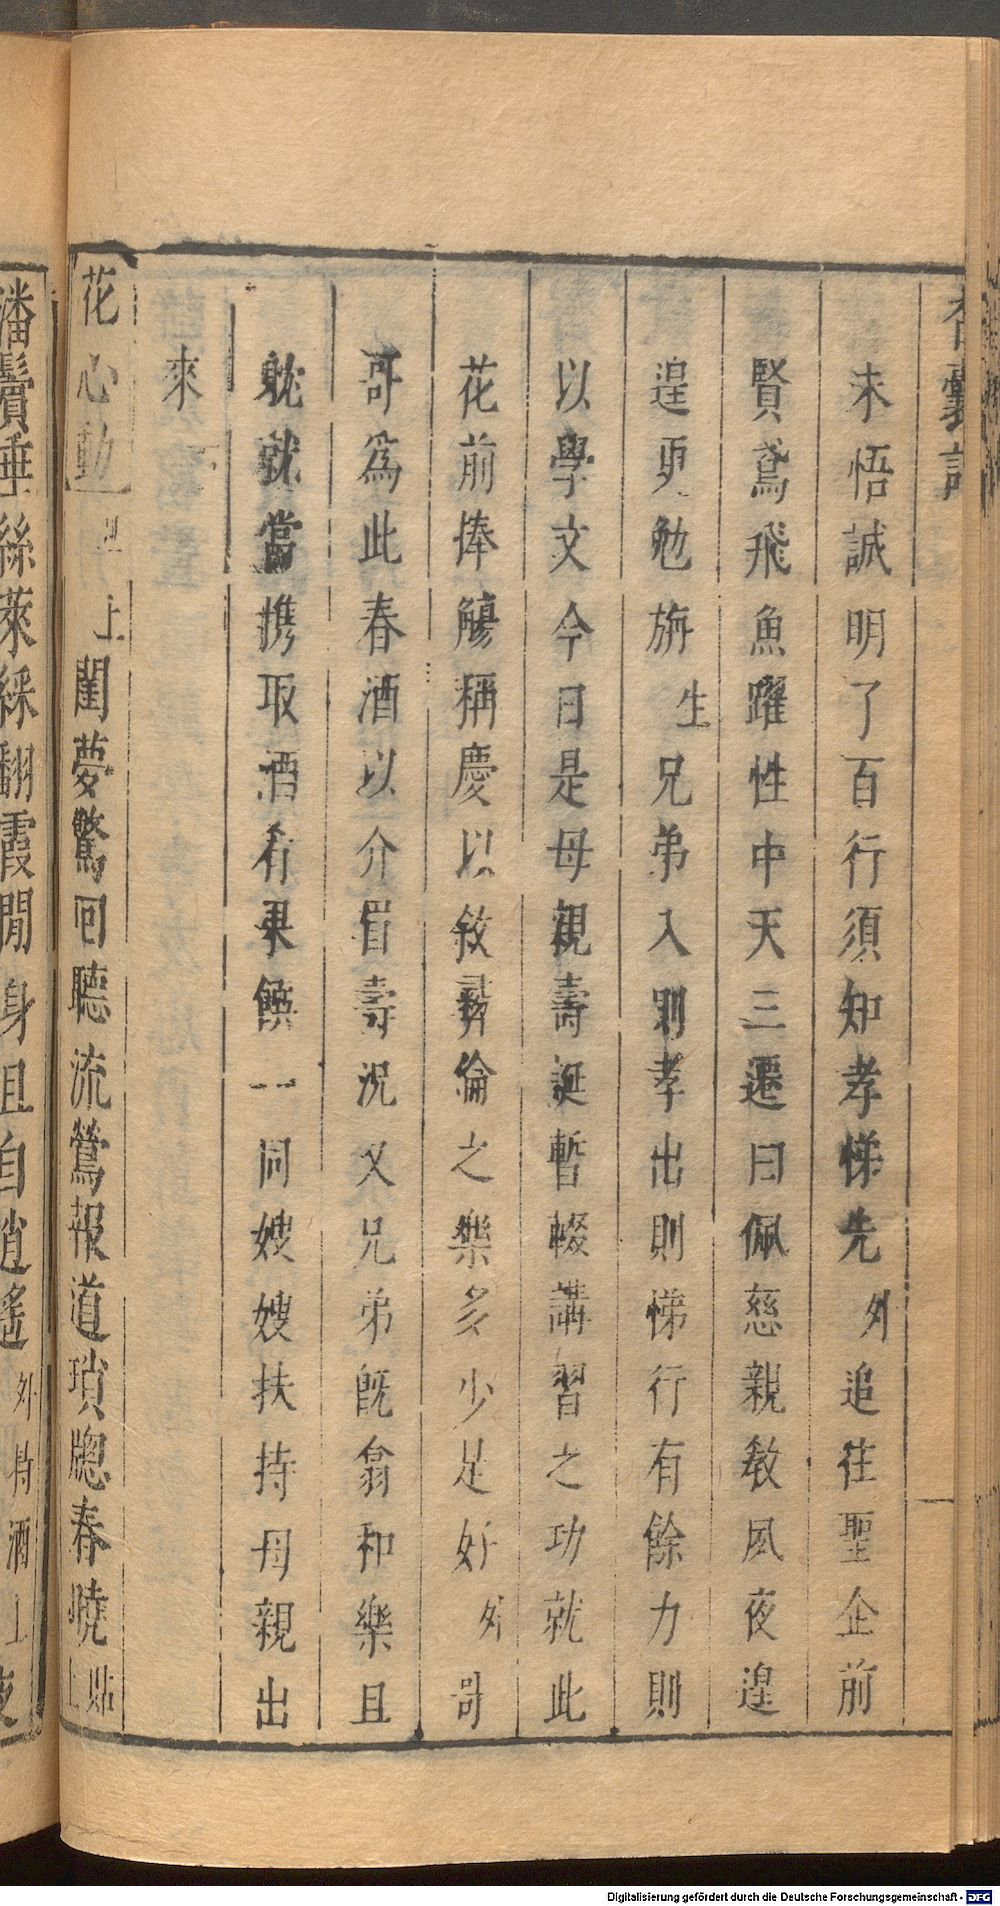 香囊記
未悟誠明了百行須知孝悌先外追往聖企前
賢鳶飛魚躍性中天三遷曰佩慈親教夙夜遑
遑更勉旃生兄弟入則孝出則悌行有餘力則
以學文今日是母親壽誕暫輟講習之功就此
花前捧觴稱慶以敘彝倫之樂多少足好外哥
哥為此春酒以介眉壽況又兄弟既翕和樂且
躭就當携取酒肴果饌一同嫂嫂扶持母親出
來
花心動 上閨夢驚回聽流鶯報道瑣牕春曉貼上
潘鬢垂絲萊綵翻霞閒身且自逍遙外持酒上
Digitalisierung gefördert durch die Deutsche Forschungsgemeinschaft - DFG